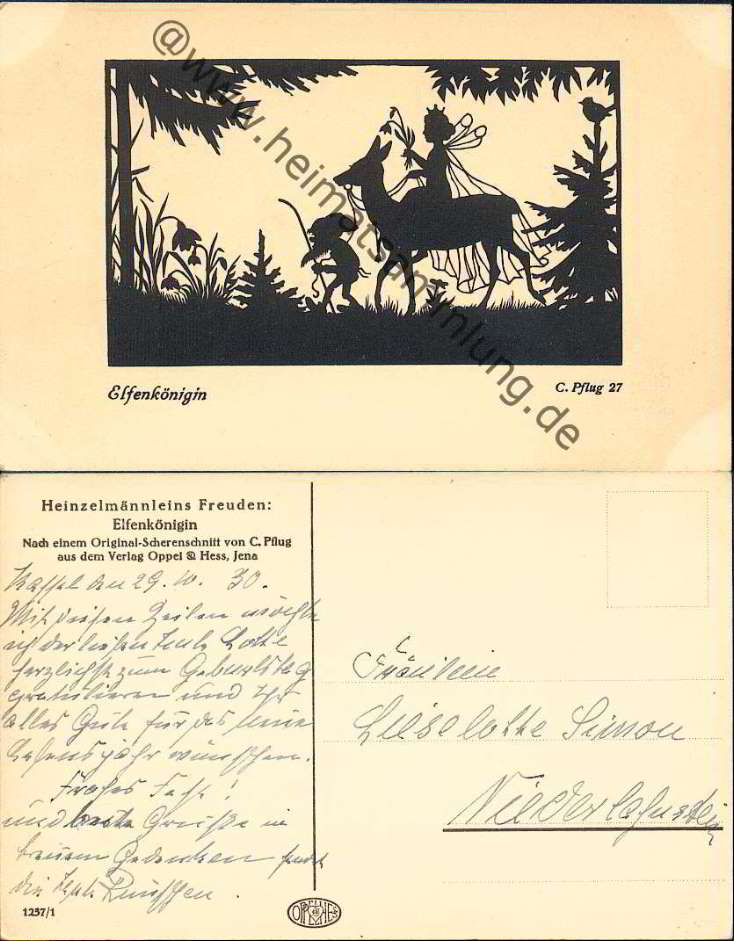 @www.heimatsammlung.de
Elfenkönigin
C. Pflug 27
Heinzelmännleins Freuden:
Elfenkönigin
Nach einem Original-Scherenschnitt von C. Pflug
aus dem Verlag Oppel & Hess, Jena
Kassel den 29. 10. 30.
Mit diesen Zeilen möchte
ich der lieben Lotte
herzlichst zum Geburtstag
gratulieren und Ihr
alles Gute für das neue
Lebensjahr wünschen.
Frohes Fest!
und beste Grüße in
treuem Gedenken
die
1257/1
OPPEL HESS
Fräulein
Lieselotte Simon
Niederlahnstein